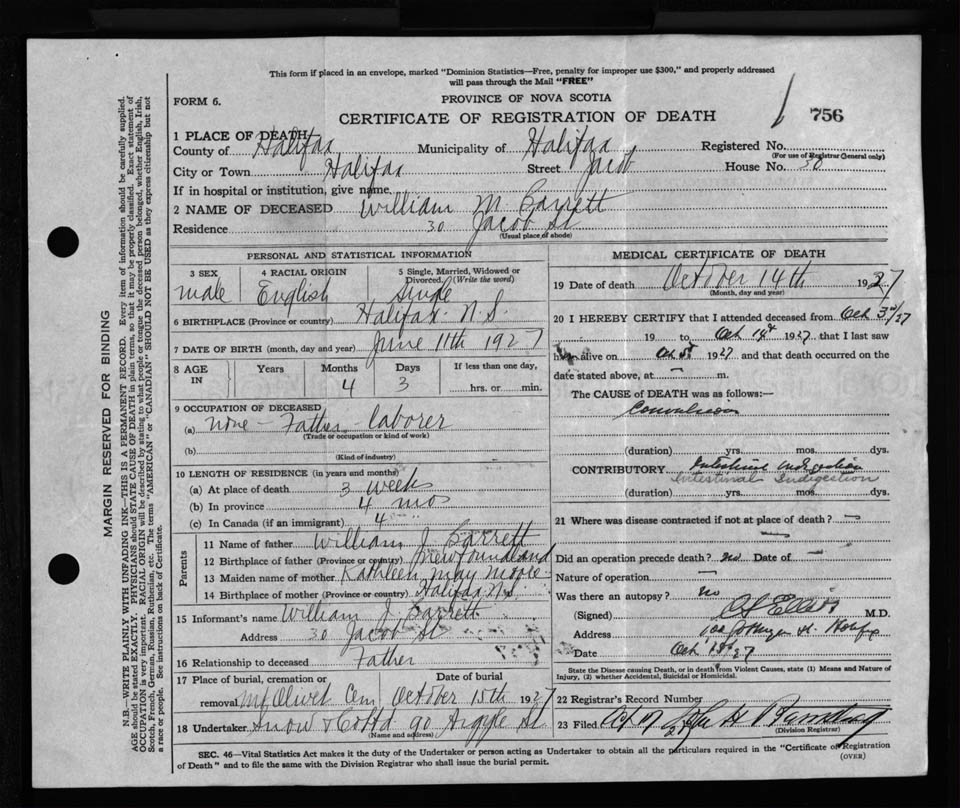 This form if placed in an envelope, marked "Dominion Statistics—Free, penalty for improper use $300," and properly addressed
will pass through the Mail "FREE"
FORM 6.
PROVINCE OF NOVA SCOTIA
CERTIFICATE OF REGISTRATION OF DEATH
756
1 PLACE OF DEATH
County of Halifax Municipality of Halifax Registered No.
(For use of Registrar General only)
City or Town Halifax Street Jacob House No. 30
If in hospital or institution, give name
2 NAME OF DECEASED William M. Barrett
Residence 30 Jacob St
(Usual place of abode)
PERSONAL AND STATISTICAL INFORMATION
3 SEX 4 RACIAL ORIGIN 5 Single, Married, Widowed or
Divorced. (Write the word)
male English Single
6 BIRTHPLACE (Province or country) Halifax N.S.
7 DATE OF BIRTH (month, day and year) June 11th 1927
8 AGE IN Years Months Days If less than one day,
4 3 hrs. or min.
9 OCCUPATION OF DECEASED
(a) none - Father - laborer
(Trade or occupation or kind of work)
(b)
(Kind of industry)
10 LENGTH OF RESIDENCE (in years and months)
(a) At place of death 3 weeks
(b) In province 4 mos
(c) In Canada (if an immigrant) 4
Parents
11 Name of father William J. Barrett
12 Birthplace of father (Province or country) Newfoundland
13 Maiden name of mother Kathleen May Moore
14 Birthplace of mother (Province or country) Halifax N.S.
15 Informant's name William J. Barrett
Address 30 Jacob St
16 Relationship to deceased Father
17 Place of burial, cremation or Date of burial
removal Mt Olivet Cem October 15th 1927
18 Undertaker Snow & Co Ltd 90 Argyle St
(Name and address)
MEDICAL CERTIFICATE OF DEATH
19 Date of death October 14th 1927
(Month, day and year)
20 I HEREBY CERTIFY that I attended deceased from Oct 3rd/27
19 to Oct 14th 1927, that I last saw
h alive on Oct 1927, and that death occurred on the
date stated above, at - m.
The CAUSE of DEATH was as follows:—
Convulsions
(duration) yrs. mos. dys.
CONTRIBUTORY Intestinal indigestion
Intestinal Indigestion
(duration) yrs. mos. dys.
21 Where was disease contracted if not at place of death? -
Did an operation precede death? no Date of -
Nature of operation -
Was there an autopsy? no
(Signed) Elliott M.D.
Address
Date Oct 27
State the Disease causing Death, or in death from Violent Causes, state (1) Means and Nature of
Injury, (2) whether Accidental, Suicidal or Homicidal.
22 Registrar's Record Number
23 Filed
(Division Registrar)
SEC. 46—Vital Statistics Act makes it the duty of the Undertaker or person acting as Undertaker to obtain all the particulars required in the "Certificate of Registration
of Death" and to file the same with the Division Registrar who shall issue the burial permit.
(OVER)
MARGIN RESERVED FOR BINDING
N.B.—WRITE PLAINLY WITH UNFADING INK—THIS IS A PERMANENT RECORD. Every item of information should be carefully supplied.
AGE should be stated EXACTLY. PHYSICIANS should STATE CAUSE OF DEATH in plain terms, so that it may be properly classified. Exact statement of
OCCUPATION is very important. RACIAL ORIGIN will be described by stating to what people or tongue the deceased person belonged, whether English, Irish,
Scotch, French, German, Russian, Ruthenian, etc. The terms "AMERICAN" or "CANADIAN" SHOULD NOT BE USED as they express citizenship but not
a race or people. See instructions on back of Certificate.